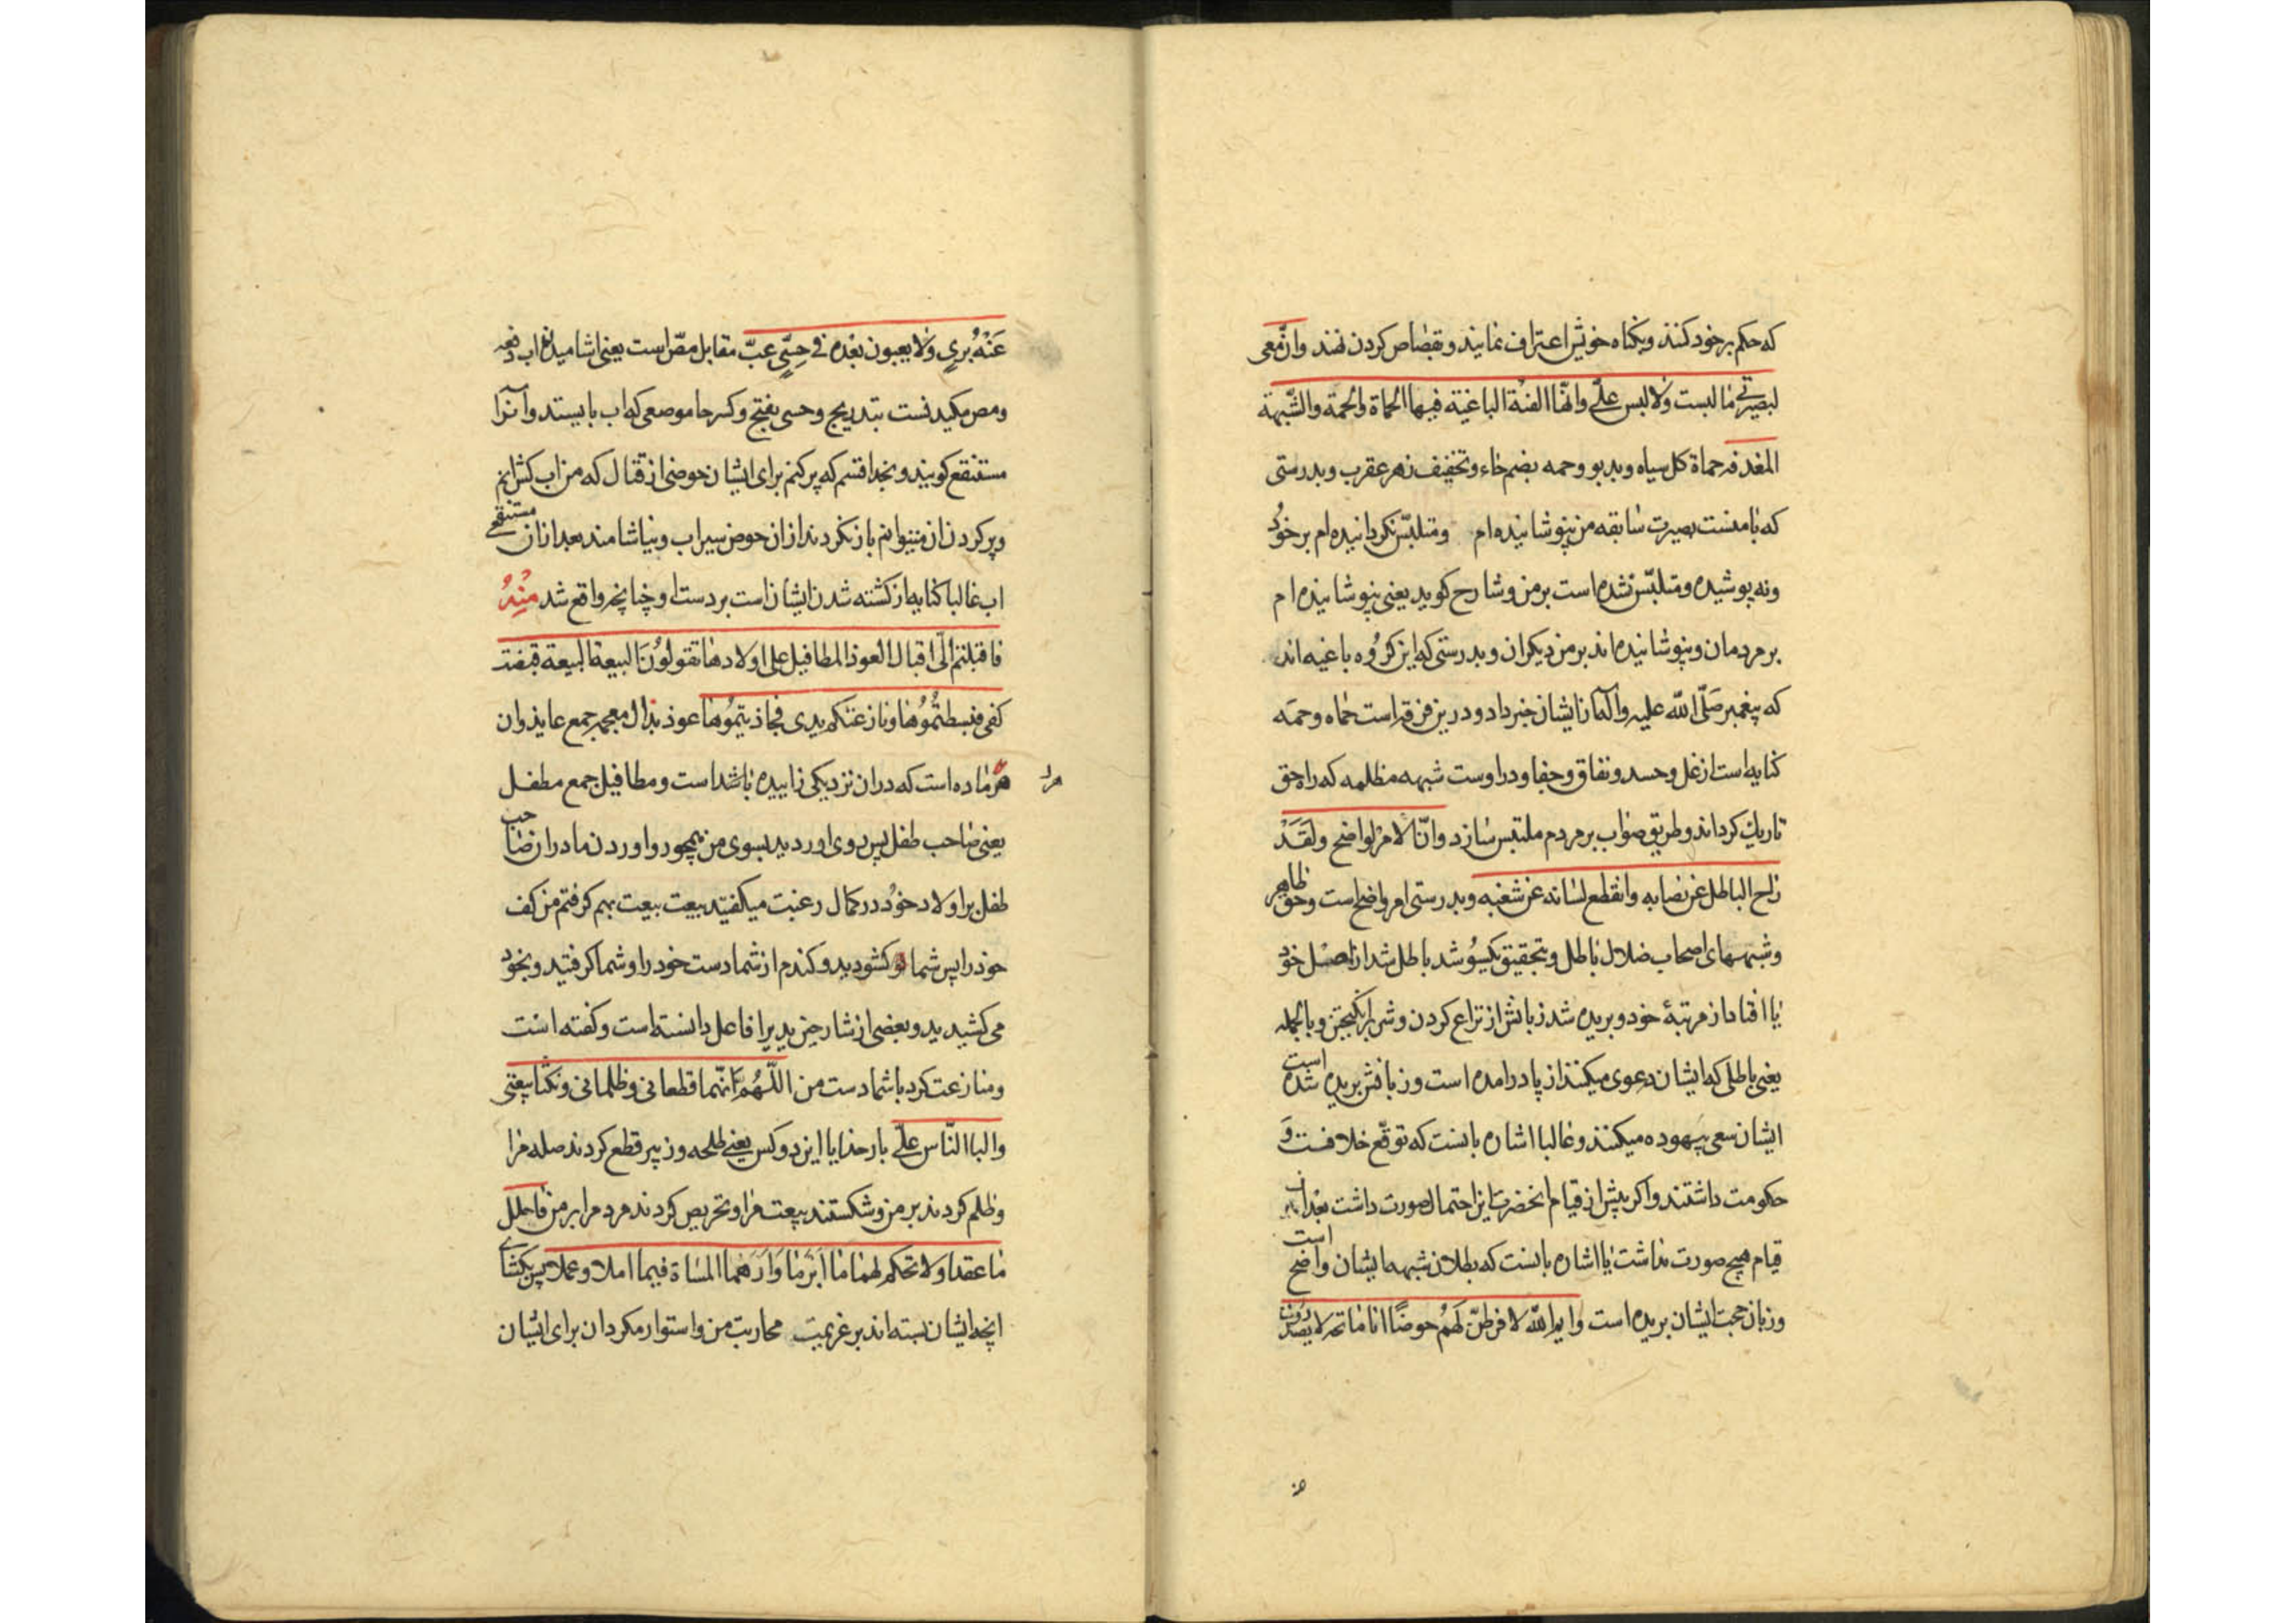 که حکم بر خود کنند و بگناه خویش اعتراف نمایند و بقصاص کردن نهند وانّ معی
لبصیرتی ما لبست ولا لبس علیّ وانّها الفئة الباغیة فیها الحماة والحمة والشّبهة
المغدفه حماة کل سیاه و بدبو و حمه بضم حاء و تخفیف زهر عقرب و بدرستی
که بامنست بصیرت سابقه من نپوشانیده ام و متلبّس نکردانیده ام بر خود
ونه پوشیده و متلبّس نشده است بر من و شارح کوید یعنی نپوشانیده ام
بر مردمان و نپوشانیده اند بر من دیکران و بدرستی که این کروه باغیه اند
که پیغمبر صلّی اللّه علیه وآله مارا از ایشان خبر داد و درین فرقه است حماه و حمه
کنایه است از غل و حسد و نفاق و جفا و در اوست شبهه مظلمه که راه حق
تاریك کرداند و طریق صواب بر مردم ملتبس سازد وانّ الامر لواضح ولقد
زاح الباطل عن نصابه وانقطع لسانه عن شغبه و بدرستی امر واضح است و حق ظاهر
و شبهه‌های اصحاب ضلال باطل و بتحقیق یکسو شد باطل شد از اصل خود
یا افتاد از مرتبهٔ خود و بریده شد زبانش از نزاع کردن و شر برانکیختن و بالجمله
یعنی باطلی که ایشان دعوی میکنند از پا درامده است و زبانش بریده شده است
ایشان سعی بیهوده میکنند و غالبا اشاره بانست که توقّع خلافت و
حکومت داشتند و اکر پیش از قیام انحضرت این احتمال صورت داشت بعد از
قیام هیچ صورت نداشت یا اشاره بانست که بطلان شبهه ایشان واضح است
و زبان حجت ایشان بریده است وایم اللّه لافرطنّ لهم حوضًا انا ماتحه لا یصدرون
عنه بری ولا یعبون بعده فی حسیٍ عبّ مقابل مصّ است یعنی اشامیدن اب دفعه
و مص مکیدنست بتدریج و حسی بفتح و کسر حا موضعی که اب بایستد و آنرا
مستنقع کویند و بخدا قسم که پر کنم برای ایشان حوضی از قتال که من اب کش انم
و پر کردن ان میتوانم باز نکردند از ان حوض سیراب و نیاشامند بعد از ان مستنقع
اب غالبا کنایه از کشته شدن ایشان است بر دست او چنانچه واقع شد منه
فاقبلتم الیّ اقبال العوذ المطافیل علی اولادها تقولون البیعة البیعة قبضت
کفی فبسطتموها و نازعتکم یدی فجاذبتموها عوذ بذال معجمه جمع عایذ و ان
هر ماده است که دران نزدیکی زاییده باشد است و مطافیل جمع مطفل مراد
یعنی صاحب طفل پس روی اوردید بسوی من همچو رو اوردن مادران صاحب
طفل بر اولاد خود در کمال رغبت میکفتید بیعت بیعت بهم کرفتم من کف
خود را پس شما کشودید و کندم از شما دست خود را و شما کرفتید و بخود
می کشیدید و بعضی از شارحین ید را فاعل دانسته است و کفته است
و منازعت کرد باشما دست من اللّهمّ انّهما قطعانی وظلمانی ونکثا بیعتی
والبا النّاس علیّ بار خدایا این دو کس یعنی طلحه و زبیر قطع کردند صله مرا
و ظلم کردند بر من و شکستند بیعت مرا و تحریص کردند مردم را بر من فاحلل
ما عقدا ولا تحکم لهما ما ابرما وارهما المساة فیما املا وعملا پس بکشای
انچه ایشان بسته اند بر عزیمت محاربت من و استوار مکردان برای ایشان